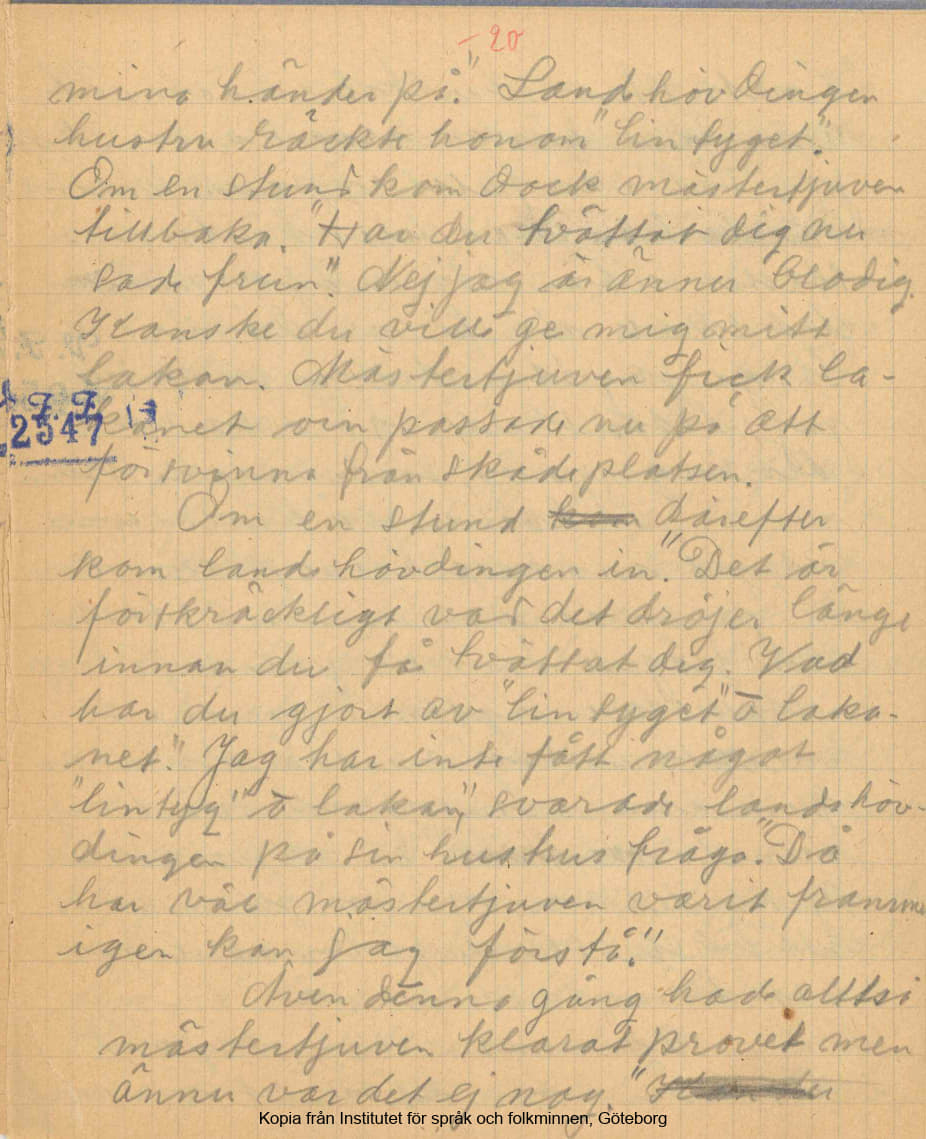 - 20
mina händer på." Landshövdingen
hustru räckte honom "lintyget".
Om en stund kom dock mästertjuven
tillbaka. "Har du tvättat dig nu
sade frun". Nej jag är ännu blodig.
Kanske du vill ge mig mitt
lakan. Mästertjuven fick la-
kanet och passade nu på att
försvinna från skådeplatsen.
Om en stund därefter
kom landshövdingen in. "Det är
förskräckligt vad det dröjer länge
innan du få tvättat dig. Vad
har du gjort av "lintyget" o laka-
net". Jag har inte fått något
"lintyg" o lakan", svarade landshöv-
dingen på sin hustrus fråga. "Då
har väl mästertjuven varit framme
igen kan jag förstå."
Även denna gång hade alltså
mästertjuven klarat provet men
ännu var det ej nog. "
2547
Kopia från Institutet för språk och folkminnen, Göteborg